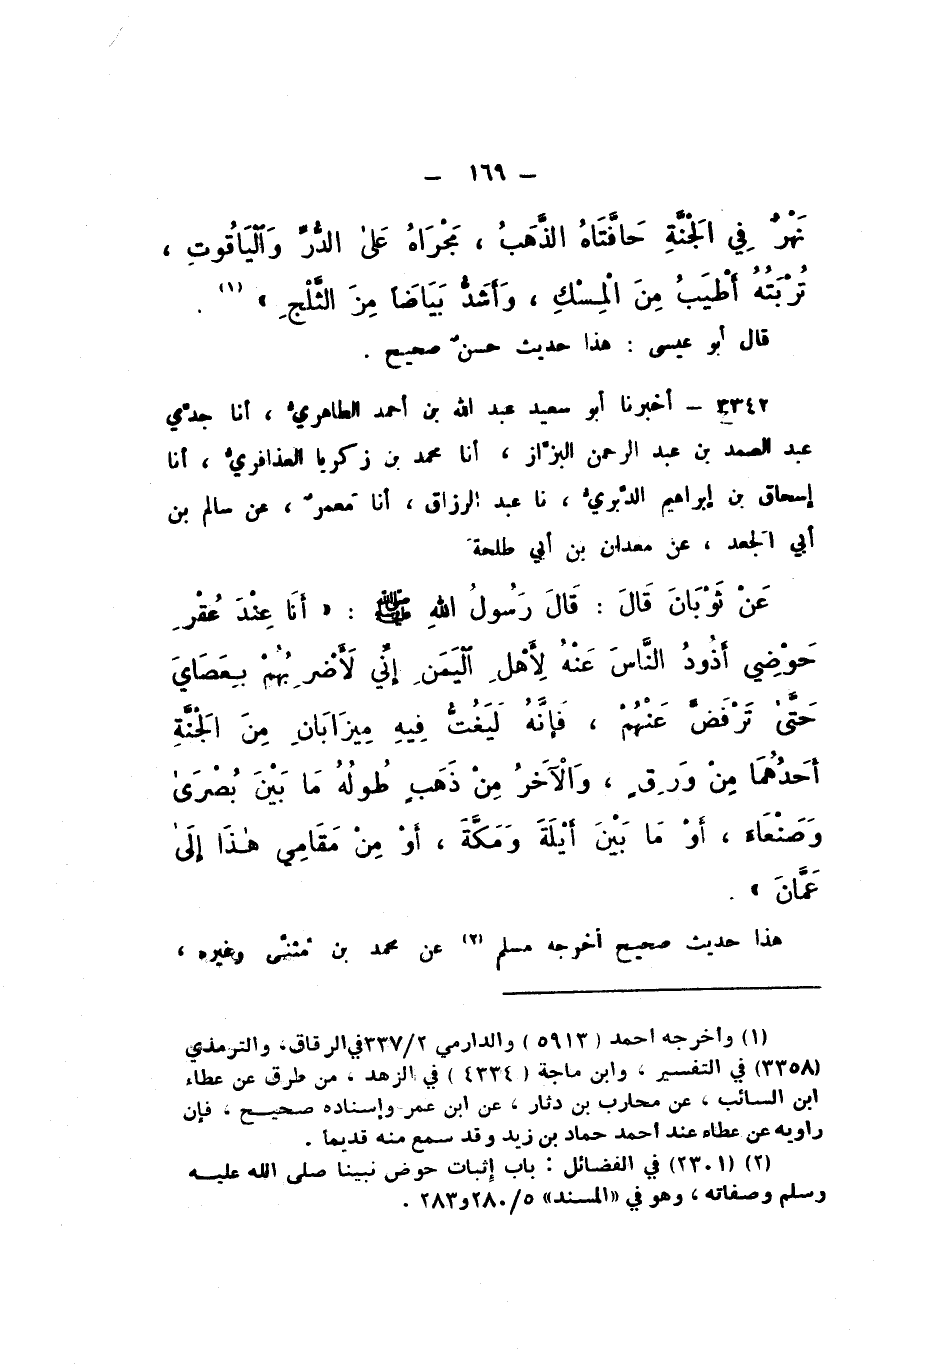 — ١٦٩ —
نَهْرٌ فِي الْجَنَّةِ حَافَّتَاهُ الذَّهَبُ ، مَجْرَاهُ عَلَىٰ الدُّرِّ وَٱلْيَاقُوتِ ،
تُرْبَتُهُ أَطْيَبُ مِنَ الْمِسْكِ ، وَأَشَدُّ بَيَاضَاً مِنَ الثَّلْجِ » (١) .
قال أبو عيسى : هذا حديث حسنٌ صحيح .
٤٣٤٢ – أخبرنا أبو سعيد عبد الله بن أحمد الطاهريُّ ، أنا جدّي
عبد الصمد بن عبد الرحمن البزّاز ، أنا محمد بن زكريا العذافريُّ ، أنا
إسحاق بن إبراهيم الدَّبريُّ ، نا عبد الرزاق ، أنا مَعمرٌ ، عن سالم بن
أبي الجَعد ، عن معدان بن أبي طلحةَ
عَنْ ثَوْبَانَ قَالَ : قَالَ رَسُولُ اللهِ ﷺ : « أَنَا عِنْدَ عُقْرِ
حَوْضِي أَذُودُ النَّاسَ عَنْهُ لِأَهْلِ ٱلْيَمَنِ إِنِّي لَأَضْرِبُهُمْ بِعَصَايَ
حَتَّىٰ تَرْفَضَّ عَنْهُمْ ، فَإِنَّهُ لَيَغُتُّ فِيهِ مِيزَابَانِ مِنَ الْجَنَّةِ
أَحَدُهُمَا مِنْ وَرِقٍ ، وَالْآخَرُ مِنْ ذَهَبٍ طُولُهُ مَا بَيْنَ بُصْرَىٰ
وَصَنْعَاءَ ، أَوْ مَا بَيْنَ أَيْلَةَ وَمَكَّةَ ، أَوْ مِنْ مَقَامِي هٰذَا إِلَىٰ
عَمَّانَ » .
هذا حديث صحيح أخرجه مسلم (٢) عن محمد بن مُثنَّى وغيره ،
(١) وأخرجه أحمد ( ٥٩١٣ ) والدارمي ٣٣٧/٢ في الرقاق، والترمذي
(٣٣٥٨) في التفسير ، وابن ماجة ( ٤٣٣٤ ) في الزهد ، من طرق عن عطاء
ابن السائب ، عن محارب بن دثار ، عن ابن عمر وإسناده صحيح ، فإن
راويه عن عطاء عند أحمد حماد بن زيد وقد سمع منه قديماً .
(٢) (٢٣٠١) في الفضائل : باب إثبات حوض نبينا صلى الله عليه
وسلم وصفاته ، وهو في «المسند» ٢٨٠/٥ و٢٨٣ .